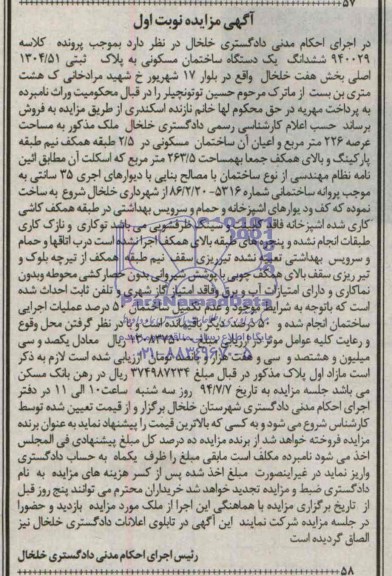 ۵۷
آگهی مزایده نوبت اول
در اجرای احکام مدنی دادگستری خلخال در نظر دارد بموجب پرونده کلاسه
۹۴۰۰۲۹ ششدانگ یک دستگاه ساختمان مسکونی به پلاک ثبتی ۱۳۰۴/۵۱
اصلی بخش هفت خلخال واقع در بلوار ۱۷ شهریور خ شهید مرادخانی ک هشت
متری بن بست از ماترک مرحوم حسین توتونچیلر را در قبال محکومیت وراث نامبرده
به پرداخت مهریه در حق محکوم لها خانم نازنده اسکندری از طریق مزایده به فروش
برساند حسب اعلام کارشناسی رسمی دادگستری خلخال ملک مذکور به مساحت
عرصه ۲۲۶ متر مربع و اعیان آن ساختمان مسکونی در ۲/۵ طبقه همکف نیم طبقه
پارکینگ و بالای همکف جمعا بهمساحت ۲۶۳/۵ متر مربع که اسکلت آن مطابق ائین
نامه نظام مهندسی از نوع ساختمان با مصالح بنایی با دیوارهای اجری ۳۵ سانتی به
موجب پروانه ساختمانی شماره ۵۳۱۶-۸۶/۲/۲۰ از شهرداری خلخال شروع به ساخت
نموده که کف ود یوارهای اشپزخانه و حمام و سرویس بهداشتی در طبقه همکف کاشی
کاری شده اشپزخانه فاقد کابینت و سینک ظرفشویی می باشد توکاری و نازک کاری
طبقات انجام نشده و پنجره های طبقه بالای همکف اجرا نشده است درب اتاقها و حمام
و سرویس بهداشتی تعبیه نشده تیرریزی سقف نیم طبقه همکف از تیرچه بلوک و
تیر ریزی سقف بالای همکف چوبی با پوشش شیروانی بدون حصارکشی محوطه وبدون
نماکاری و دارای امتیازات آب و برق وفاقد امتیاز گاز شهری و تلفن ثابت احداث شده
است که باتوجه به شرایط موجود و عدم تکمیل ساختمان ۵۰ درصد عملیات اجرایی
ساختمان انجام شده و ۵۰ درصد دیگر باقیمانده است با در نظر گرفتن محل وقوع
و رعایت کلیه عوامل موثر در ارزش ملک ریال معادل یکصد و سی
میلیون و هشتصد و سی و هفت هزار تومان ارزیابی شده است لازم به ذکر
است مازاد اول پلاک مذکور در قبال مبلغ ۳۷۴۹۸۷۲۳۴ ریال در رهن بانک مسکن
می باشد جلسه مزایده به تاریخ ۹۴/۷/۷ روز سه شنبه ساعت۱۰ الی ۱۱ در دفتر
اجرای احکام مدنی دادگستری شهرستان خلخال برگزار و از قیمت تعیین شده توسط
کارشناس شروع می شود و به کسی که بالاترین قیمت را پیشنهاد نماید به عنوان برنده
مزایده فروخته خواهد شد از برنده مزایده ده درصد کل مبلغ پیشنهادی فی المجلس
اخذ می شود نامبرده مکلف است مابقی مبلغ را ظرف یکماه به حساب دادگستری
واریز نماید در غیراینصورت مبلغ اخذ شده پس از کسر هزینه های مزایده به نام
دادگستری ضبط و مزایده تجدید خواهد شد خریداران محترم می توانند پنج روز قبل
از تاریخ برگزاری مزایده با هماهنگی این اجرا از ملک مورد مزایده بازدید و حضورا
در جلسه مزایده شرکت نمایند این آگهی در تابلوی اعلانات دادگستری خلخال نیز
الصاق گردیده است
رئیس اجرای احکام مدنی دادگستری خلخال
۵۸
ParsNamadData
۰۲۱-۸۸۳۴۹۶۷۰-۵